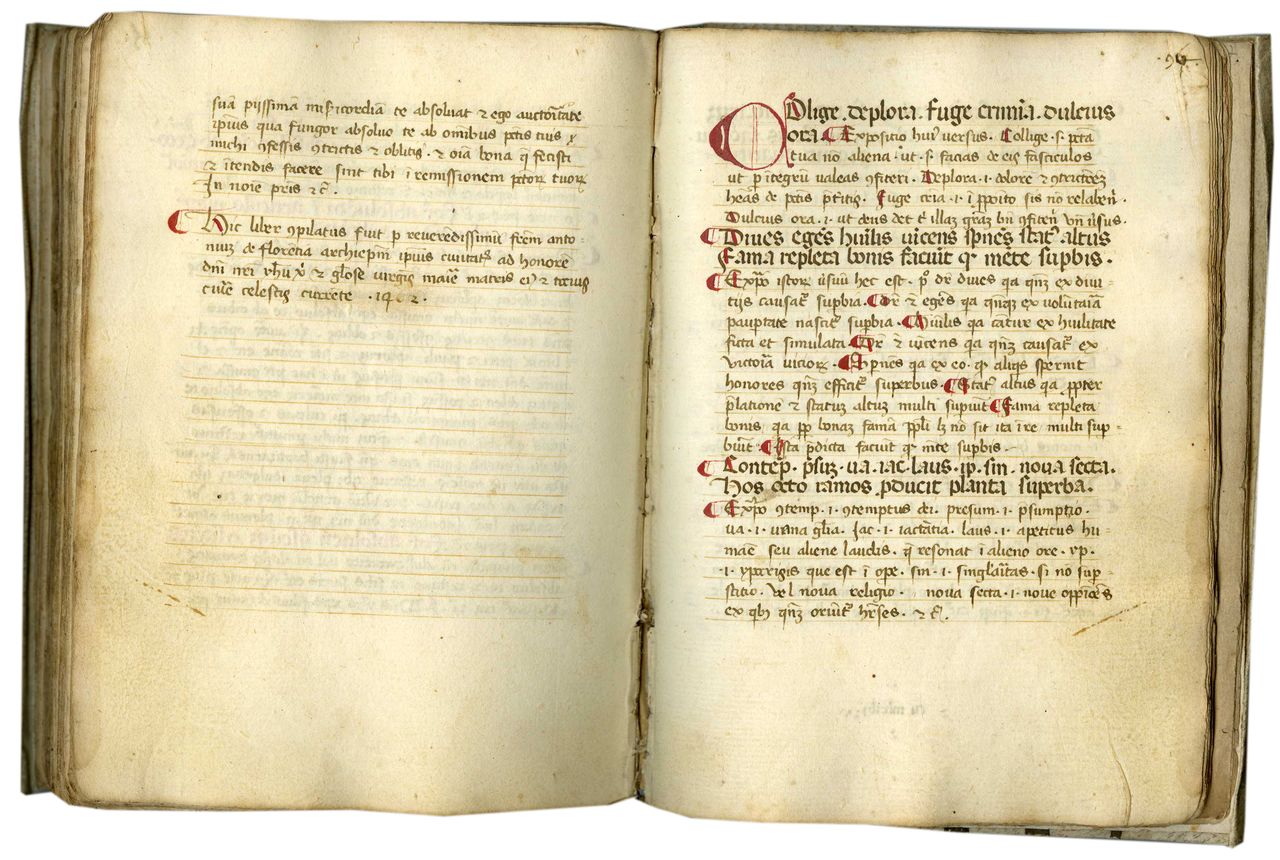 suā pijssimā mīsicordiā te absoluat ⁊ ego auctoritāte
ipius qua fungor absoluo te ab omibus pctis tuis ⁊
michi ꝯfessis ꝯtrictis ⁊ oblitis · ⁊ oīa bona q̄ fecisti
⁊ ītendis facere sint tibi ī remissionem pctoꝝ tuoꝝ
In noīe pris ⁊ c̄ .
Hic liber ꝯpilatus fuit p reueredissimū frēm anto-
niuȝ de florētia archiepm̄ ipius ciuitatꝭ ad honorē
dn̄i nrī yhū xp̄i ⁊ gl̄ose uirgīs marīe matris eiꝰ ⁊ totiuꝭ
curīe celestis currēte · 14 2 ·
94
Collige . deplora . fuge crimīa . dulcius
ora . Expositio huiꝰ versus . Collige · s · pcta
tua nō aliena ut · s · facias de eis fasciculos
ut p ītegrū ualeas ꝯfiteri . Deplora · i · dolore ⁊ ꝯtrictiōeȝ
heās de pctis p̄tītis . Fuge cr̄īa · i · ī pposito sis nō relabendi
Dulcius ora · i · ut deus det t illaȝ grāȝ bn̄ ꝯfitendi
Diues egēs huīlis uīcens spn̄ēs statꝰ altus
Fama repleta bonis faciūt qꝫ mēte supbis .
Exp̄o istoꝝ uersuū hec est · pº dr̄ diues qa qn̄qȝ ex diui-
tijs causatꝰ supbia . Dr̄ ⁊ egēs qa qnꝫqȝ ex volūtaria
paupertate nascitꝰ superbia . Huīlis qa cātur ex huīlitate
ficta et simulata . Dr̄ ⁊ uīcens qa qn̄qȝ causatꝰ ex
victoria vicioꝝ . Spnēs qa ex eo · qꝫ aliqꝭ spernit
honores qn̄qȝ efficitꝰ superbus . Statꝰ altus qa ppter
platione ⁊ statuȝ altuȝ multi supiūt Fama repleta
bonis qa pp bonaȝ famā ppli lȝ nō sit ita ī re multi sup-
biūt . Ista pdicta faciūt qꝫ mēte supbis .
Contēp . psūȝ . ua . iac . laus . ip . sin . noua secta .
Hos octo ramos pducit planta superba .
Exp̄o ꝯtemp . i . ꝯtemptus dei . presum . i . psumptio .
ua . i . uana gl̄ia . iac . i . iactātia . laus . i . apetitus hu-
māe seu aliene laudis . q̄ resonat ī alieno ore . yp .
. i . ypocrisis que est ī ope . sin . i . singl̄aritas . si nō sup-
stitio . vel noua religio . noua secta . i . noue oppiōes
ex qbꝰ qn̄qȝ oriūtꝰ hr̄eses . ⁊ c̄ .